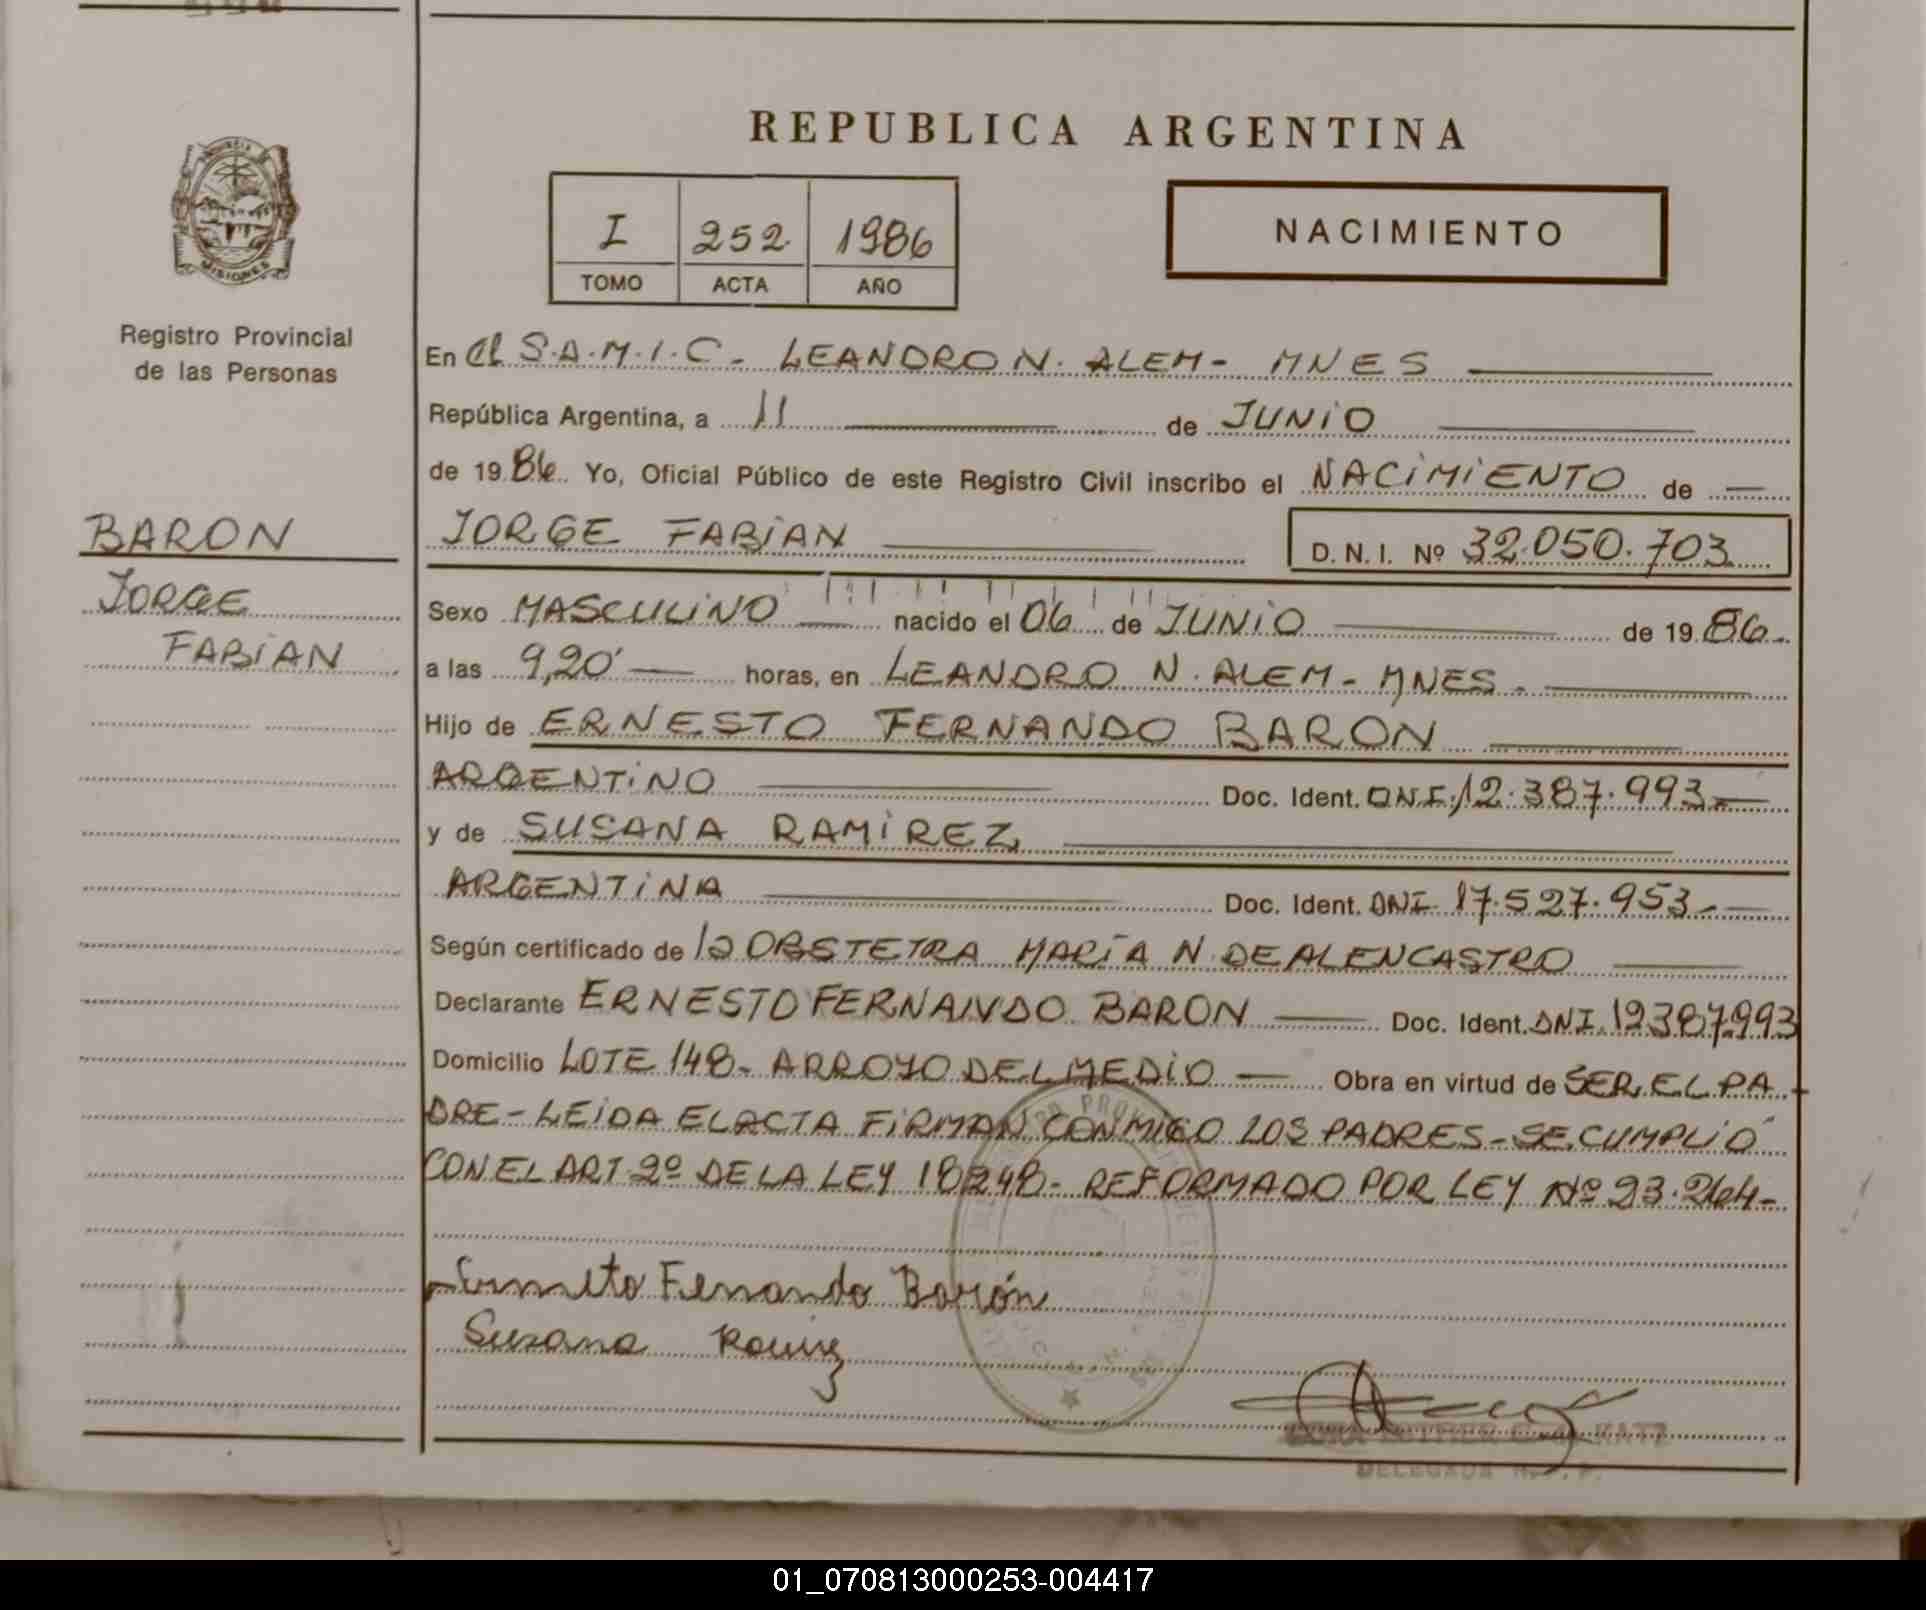 REPUBLICA ARGENTINA
I 252 1986
TOMO ACTA AÑO
NACIMIENTO
MISIONES
Registro Provincial
de las Personas
BARON
JORGE
FABIAN
En el S.A.M.I.C. - LEANDRO N. ALEM - MNES
República Argentina, a 11 de JUNIO
de 1986 Yo, Oficial Público de este Registro Civil inscribo el NACIMIENTO de
JORGE FABIAN D. N. I. Nº 32.050.703
Sexo MASCULINO nacido el 06 de JUNIO de 1986
a las 9,20' horas, en LEANDRO N. ALEM - MNES.
Hijo de ERNESTO FERNANDO BARON
ARGENTINO Doc. Ident. D.N.I. 12.387.993
y de SUSANA RAMIREZ
ARGENTINA Doc. Ident. DNI 17.527.953
Según certificado de la OBSTETRA MARIA N. DE ALENCASTRO
Declarante ERNESTO FERNANDO BARON Doc. Ident. DNI. 12387993
Domicilio LOTE 148 - ARROYO DEL MEDIO Obra en virtud de SER EL PA
DRE - LEIDA EL ACTA FIRMAN CONMIGO LOS PADRES - SE CUMPLIO
CON EL ART. 2º DE LA LEY 18248 - REFORMADO POR LEY Nº 23.264 -
Ernesto Fernando Barón
Susana Ramirez
KATZ
DELEGADA
01_070813000253-004417